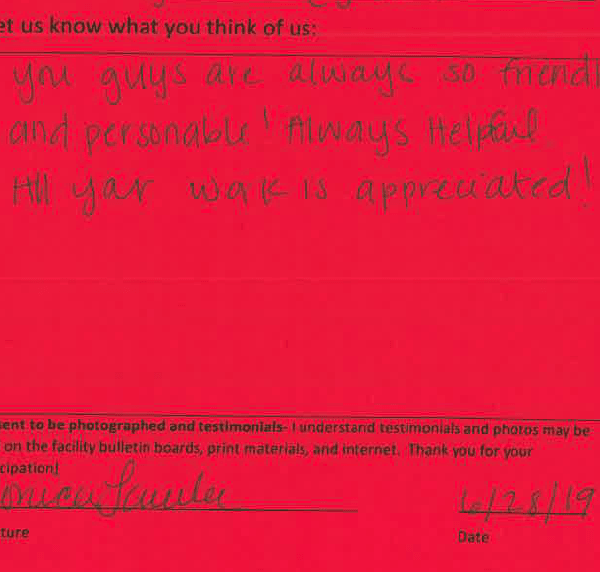 et us know what you think of us:
you guys are always so friendl
and personable! Always Helpful
All your work is appreciated!
sent to be photographed and testimonials- I understand testimonials and photos may be
on the facility bulletin boards, print materials, and internet. Thank you for your
cipation!
6/28/19
ture
Date